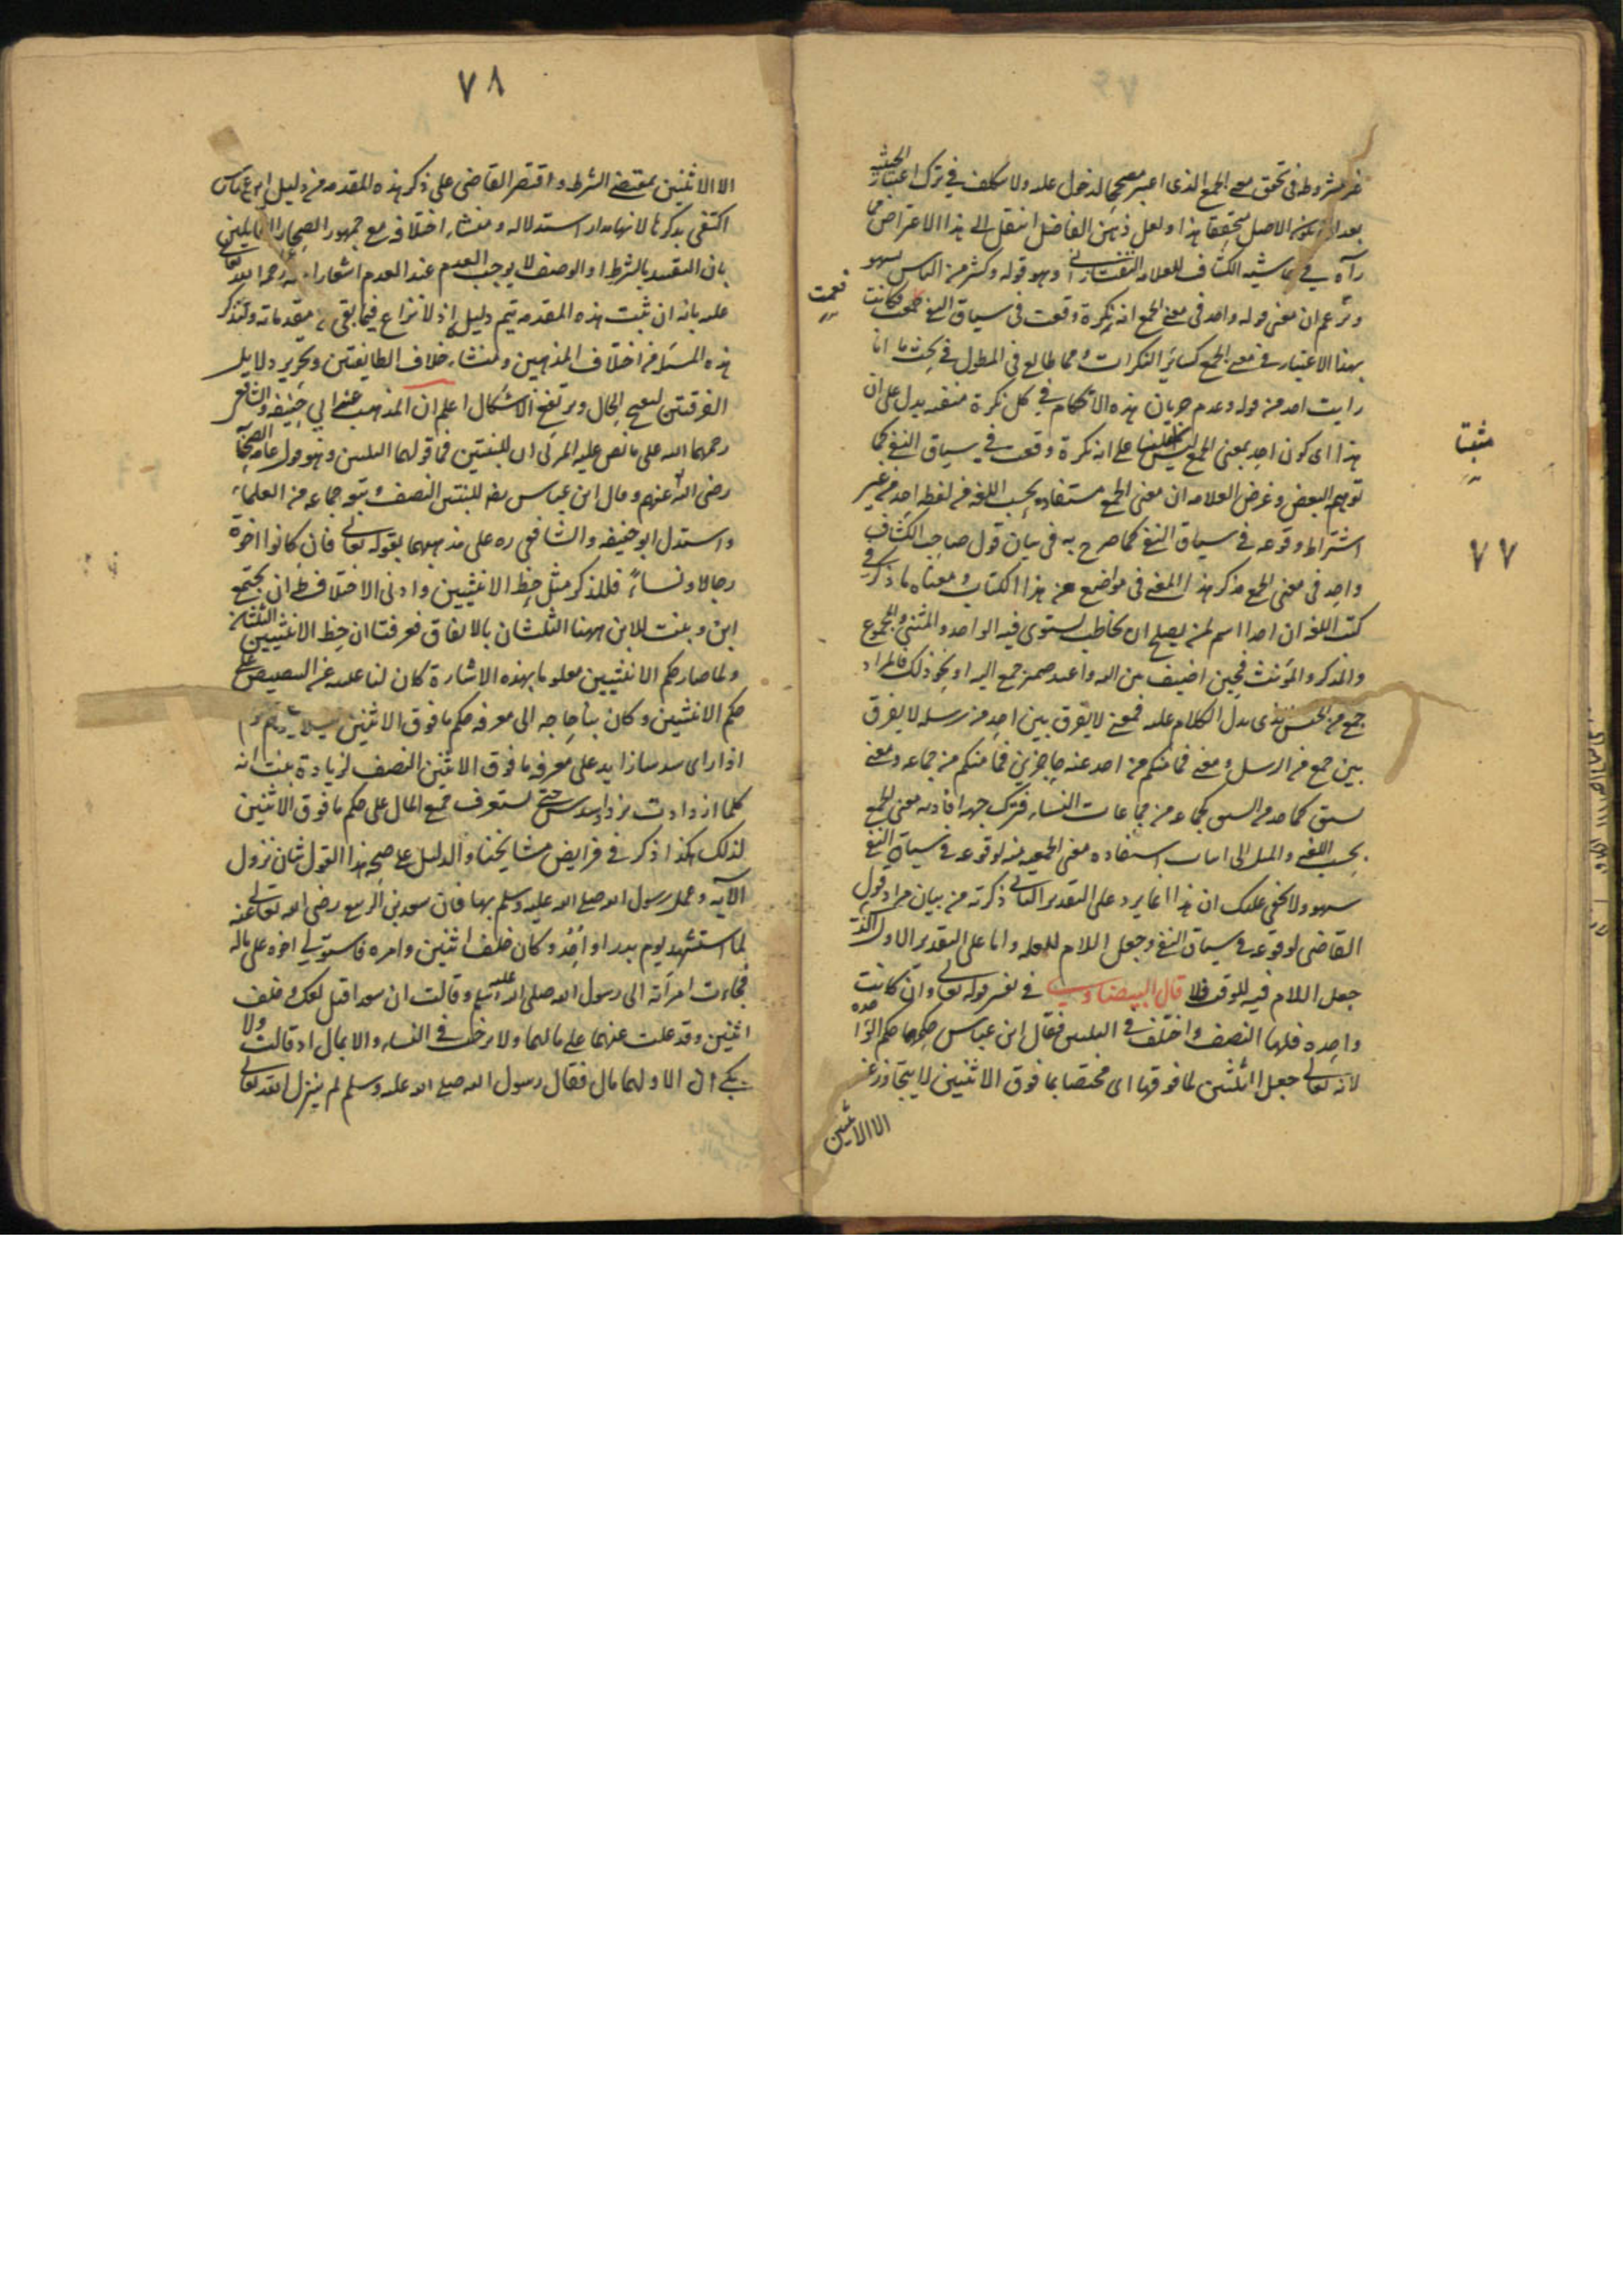 ٧٧
غير مشروط في تحقق معنى الجمع الذي اعتبر مصححا لدخول عليه ولا تكلف في ترك اعتبار الحيثية
بعد ان يكون الاصل متحققا هذا ولعل ذهن الفاضل انتقل الى هذا الاعتراض مما
رآه في حاشيه الكشاف للعلامه التفتازاني وهو قوله وكثير من الناس يسهو
ويزعم ان معنى قوله واحد في معنى الجمع انه نكرة وقعت في سياق النفي فعمت فكانت
فعمت
بهذا الاعتبار في معنى الجمع كسائر النكرات ومما طالع في المطول في بحث ما انا
رايت احد من قوله وعدم جريان هذه الاحكام في كل نكرة منفيه يدل على ان
هذا اي كون احد بمعنى الجمع ليس مبنيا على انه نكرة وقعت في سياق النفي كما
مثبتا
توهم البعض وغرض العلامه ان معنى الجمع مستفاد بحسب اللغه من لفظه احد من غير
اشتراط وقوعه في سياق النفي كما صرح به في بيان قول صاحب الكشاف
واحد في معنى الجمع مذكر هذا المعنى في مواضع من هذا الكتاب ومعناه ما ذكر في
كتب اللغه ان احدا اسم لمن يصلح ان يخاطب يستوي فيه الواحد والمثنى والمجموع
والمذكر والمؤنث فحين اضيف بين اليه واعيد ضمير جمع اليه او نحو ذلك فالمراد
جمع من الجنس الذي يدل الكلام عليه فمعنى لا يفرق بين احد من رسله لا يفرق
بين جمع من الرسل ومعنى فما منكم من احد عنه حاجزين فما منكم من جماعه ومعنى
لستن كاحد من النساء كجماعه من جماعات النساء فترك جهة افادته معنى الجمع
بحسب اللغه والميل الى اثبات استفاده معنى الجمعيه منه لوقوعه في سياق النفي
سهو ولا يخفى عليك ان هذا انما يرد على التقدير الثاني ذكرته من بيان مراد قول
القاضي لوقوعه في سياق النفي وجعل اللام للعله واما على التقدير الاول الذي
جعل اللام فيه للوقت فلا قال البيضاوي في تفسير قوله تعالى وان كانت
واحده فلها النصف واختلف في الثلثين فقال ابن عباس حكمهما حكم الواحده
لانه تعالى جعل الثلثين لما فوقهما اي مختصا بما فوق الاثنين لا يتجاوز عن
الا الاثنين
٧٨
الا الاثنين بمقتضى الشرط واقتصر القاضي على ذكر هذه المقدمه من دليل ابن عباس
اكتفى بذكرها لانها مدار استدلاله ومنشاء اختلافه مع جمهور الصحابه القايلين
بان التقييد بالشرط او الوصف لا يوجب العدم عند العدم اشعارا منه رحمه الله تعالى
عليه بانه ان ثبت هذه المقدمه يتم دليله اذ لا نزاع فيما بقي من مقدماته ولنذكر
هذه المسئله من اختلاف المذهبين ومنشاء خلاف الطايفتين وتحرير دلايل
الفرقتين ليتضح الحال ويرتفع الاشكال اعلم ان المذهب عند ابي حنيفه والشافعي
رحمهما الله على ما نص عليه المزني ان للبنتين فما فوقهما الثلثين وهو قول عامه الصحابه
رضي الله عنهم وقال ابن عباس رضه للبنتين النصف وتبعه جماعه من العلماء
واستدل ابو حنيفه والشافعي ره على مذهبهما بقوله تعالى فان كانوا اخوة
رجالا ونساءً فللذكر مثل حظ الانثيين وادنى الاختلاط ان يجتمع
ابن وبنت للابن ههنا الثلثان بالاتفاق فعرفنا ان حظ الانثيين الثلثان
ولما صار حكم الانثيين معلوما بهذه الاشارة كان لنا غنيه عن التنصيص على
حكم الانثيين وكان بنا حاجه الى معرفه حكم ما فوق الاثنين
كلما ازدادت يزداد سدس حتى يستغرق جميع المال على حكم ما فوق الاثنين
لذلك هكذا ذكر في فرايض مشايخنا والدليل على صحه هذا القول شان نزول
الآيه وعمل رسول الله صلى الله عليه وسلم بها فان سعد بن الربيع رضي الله تعالى عنه
لما استشهد يوم بدر او احد وكان خلف اثنتين وامرءه فاستولى اخوه على ماله
فجاءت امرأته الى رسول الله صلى الله عليه وسلم وقالت ان سعدا قتل معك وخلف
اثنتين وقد غلب عمهما على مالهما ولا يرغب في النساء والا بمال او قالت ولا
ينكحان الا ولهما مال فقال رسول الله صلى الله عليه وسلم لم ينزل الله تعالى